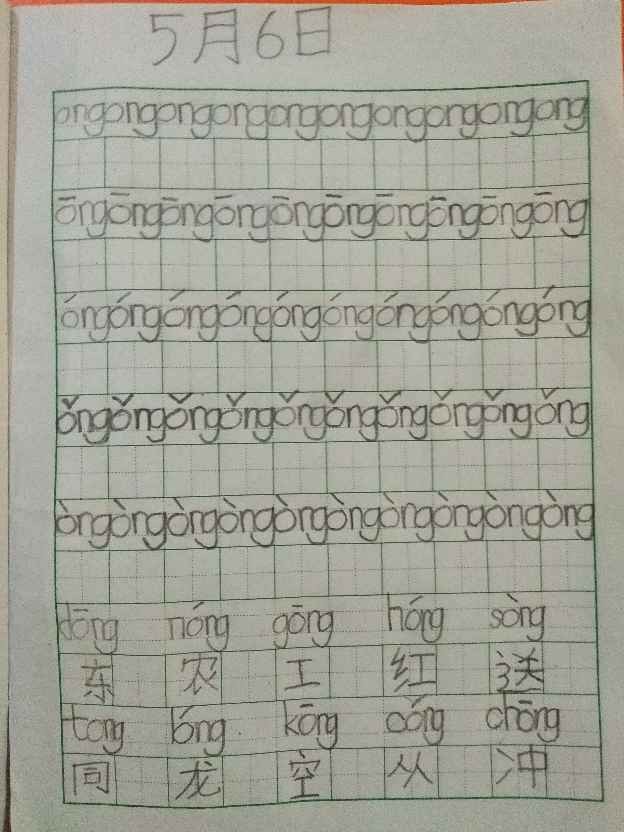 5月6日
ong ong ong ong ong ong ong ong ong ong
ōng ōng ōng ōng ōng ōng ōng ōng ōng ōng
óng óng óng óng óng óng óng óng óng óng
ǒng ǒng ǒng ǒng ǒng ǒng ǒng ǒng ǒng ǒng
òng òng òng òng òng òng òng òng òng òng
dōng nóng gōng hóng sòng
东 农 工 红 送
tong lóng kōng cóng chōng
同 龙 空 从 冲